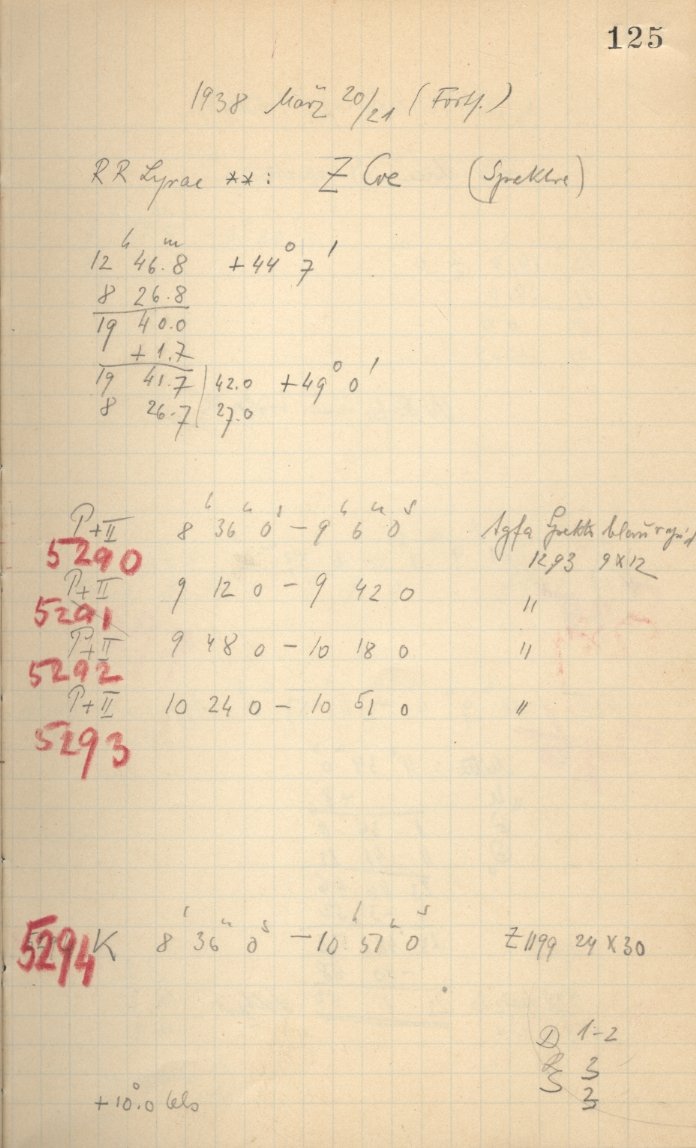 125
1938 März 20/21 (Forts.)
RR Lyrae **: Z CVe (Spektre)
12 h 46.8 m +44° 7'
8 26.8
19 40.0
+1.7
19 41.7 | 42.0 +49° 0'
8 26.7 | 27.0
P+II 8 h 36 m 0 s – 9 h 6 m 0 s Agfa Spektr. blau
5290 1293 9×12
P+II 9 12 0 – 9 42 0 "
5291
P+II 9 48 0 – 10 18 0 "
5292
P+II 10 24 0 – 10 51 0 "
5293
5294 K 8 h 36 m 0 s – 10 h 51 m 0 s Z1199 24×30
D 1-2
3
3
+10°.0